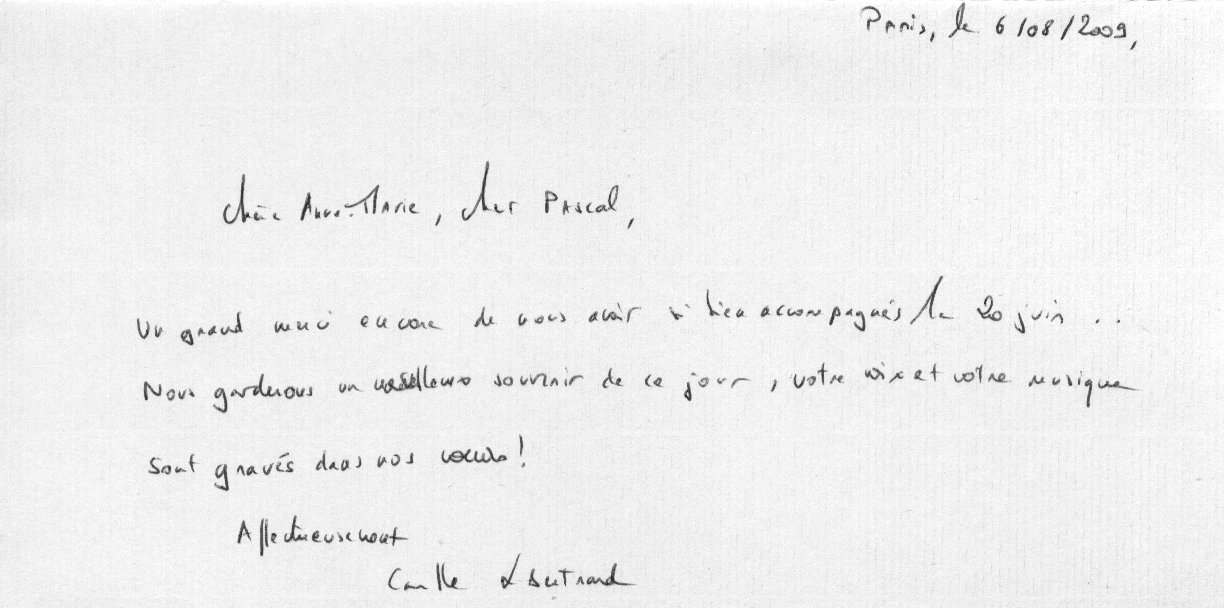 Paris, le 6/08/2009,
Chère Anne-Marie, cher Pascal,
Un grand merci encore de nous avoir si bien accompagnés le 20 juin ..
Nous garderons un souvenir de ce jour, votre voix et votre musique
sont gravés dans nos coeurs !
Affectueusement
Camille & Bertrand